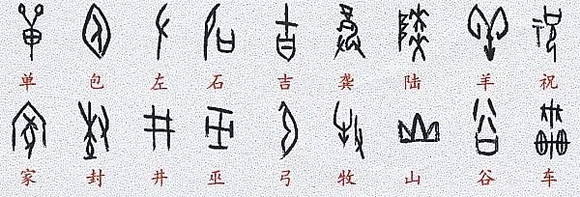 单 包 左 石 吉 龚 陆 羊 祝
家 封 井 巫 弓 牧 山 谷 车